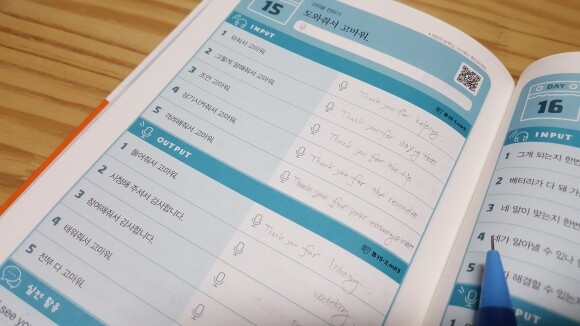 15
고마울 전하기
도와줘서 고마워.
INPUT
B15-1.mp3
1 와줘서 고마워.
Thank you for helping
2 그렇게 말해줘서 고마워.
Thank you for saying that
3 조언 고마워.
Thank you for the tip
4 상기시켜줘서 고마워.
Thank you for the reminder
5 격려해줘서 고마워.
Thank you for your encouragement
OUTPUT
B15-2.mp3
1 들어줘서 고마워.
Thank you for listening.
2 시청해 주셔서 감사합니다.
watching
3 참여해줘서 감사합니다.
4 태워줘서 고마워.
5 전부 다 고마워.
실전 활용
see you
DAY
16
INPUT
1 그게 되는지 한번
2 배터리가 다 돼 가
3 네 말이 맞는지 한번
4 네가 알아낼 수 있나
5 해결할 수 있는